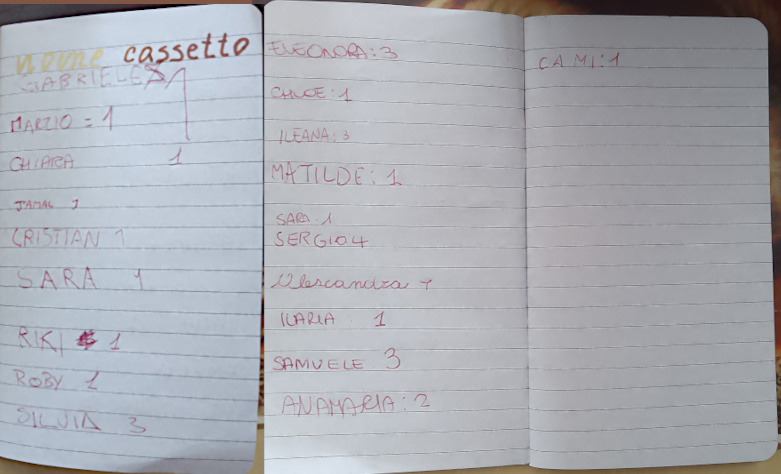 nome cassetto
GABRIELE 1
MARZIO = 1
CHIARA 1
JAMAL 1
CRISTIAN 1
SARA 1
RIKI 1
ROBY 1
SILVIA 3
ELEONORA: 3
CHLOE: 1
ILEANA: 3
MATILDE: 1
SARA: 1
SERGIO 4
Alescandra
ILARIA 1
SAMUELE 3
ANAMARIA: 2
CAMI: 1